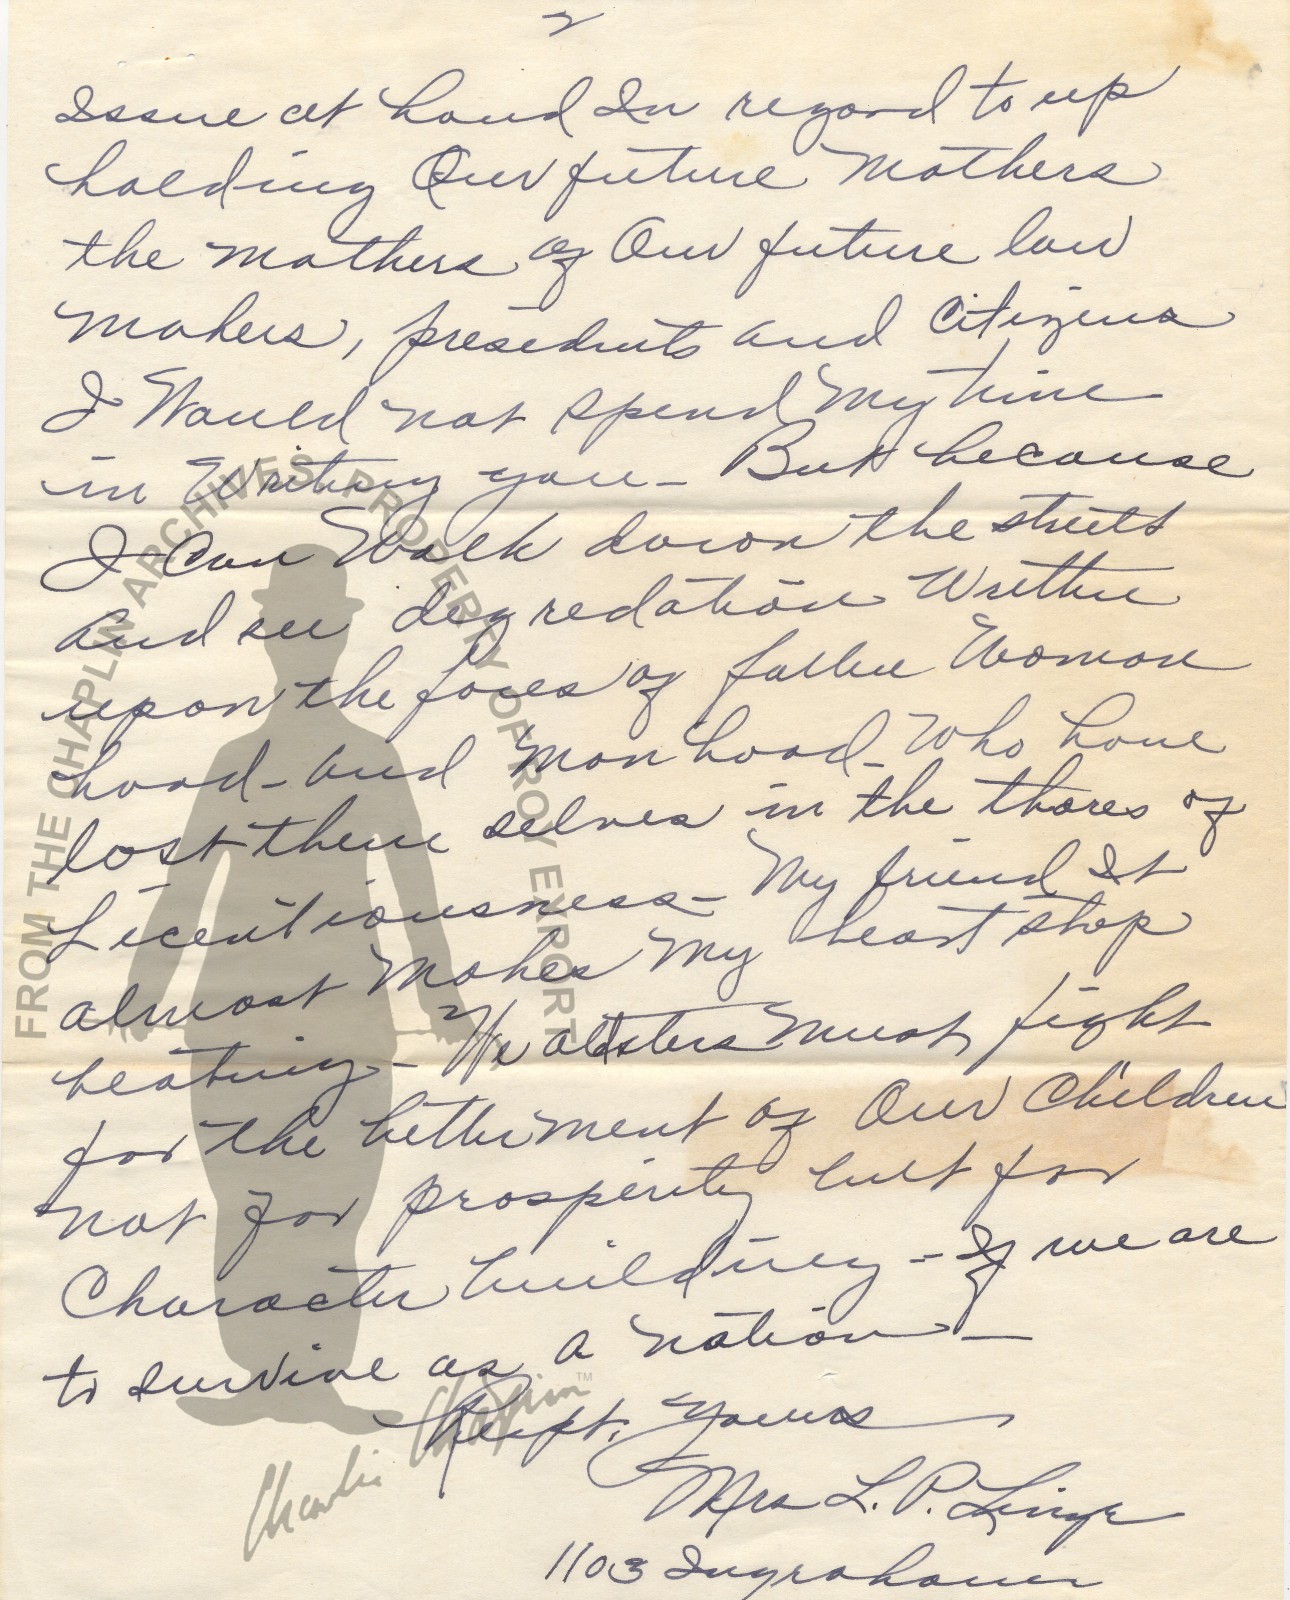 2
Issue at hand In regard to up
holding Our future Mothers
the mothers of Our future law
makers, presidents and Citizens
I Would not spend My time
in Writing you - But because
I can Walk down the streets
and see degredation Written
upon the faces of fallen Woman
hood - and Man hood - Who have
lost them selves in the thores of
Licentiousness - My friend It
almost Makes My heart stop
beating - We Must fight
for the betterment of Our Children
not for prosperity but for
Character building - If we are
to survive as a Nation -
Respt. Yours
Mrs L. P.
1103
FROM THE CHAPLIN ARCHIVES PROPERTY OF ROY EXPORT
Charlie Chaplin™